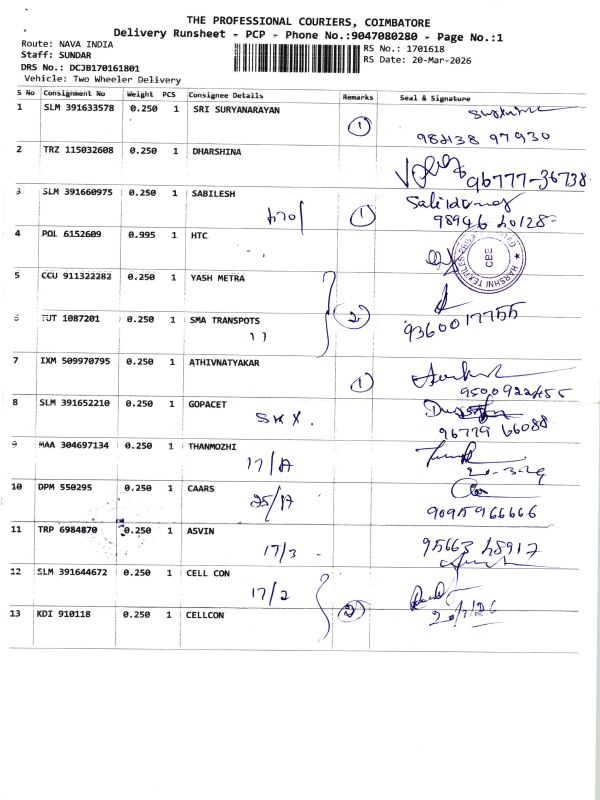 THE PROFESSIONAL COURIERS, COIMBATORE
Delivery Runsheet - PCP - Phone No.:9047080280 - Page No.:1
Route: NAVA INDIA
RS No.: 1701618
Staff: SUNDAR
RS Date: 20-Mar-2026
DRS No.: DCJB170161801
Vehicle: Two Wheeler Delivery
S No Consignment No Weight PCS Consignee Details Remarks Seal & Signature
1 SLM 391633578 0.250 1 SRI SURYANARAYAN
1 98438 97930
2 TRZ 115032608 0.250 1 DHARSHINA
96777-36738
3 SLM 391660975 0.250 1 SABILESH
1 98946 40128
4 POL 6152609 0.995 1 HTC
HARSHNI TEXTILES CBE
5 CCU 911322282 0.250 1 YASH METRA
2
6 TUT 1087201 0.250 1 SMA TRANSPOTS
11 9360017755
7 IXM 509970795 0.250 1 ATHIVNATYAKAR
1 9500922455
8 SLM 391652210 0.250 1 GOPACET
SKX. 96779 66088
9 MAA 304697134 0.250 1 THANMOZHI
17/A
10 DPM 550295 0.250 1 CAARS
25/A 9095966666
11 TRP 6984870 0.250 1 ASVIN
17/3 95663 48917
12 SLM 391644672 0.250 1 CELL CON
17/2
13 KDI 910118 0.250 1 CELLCON
2